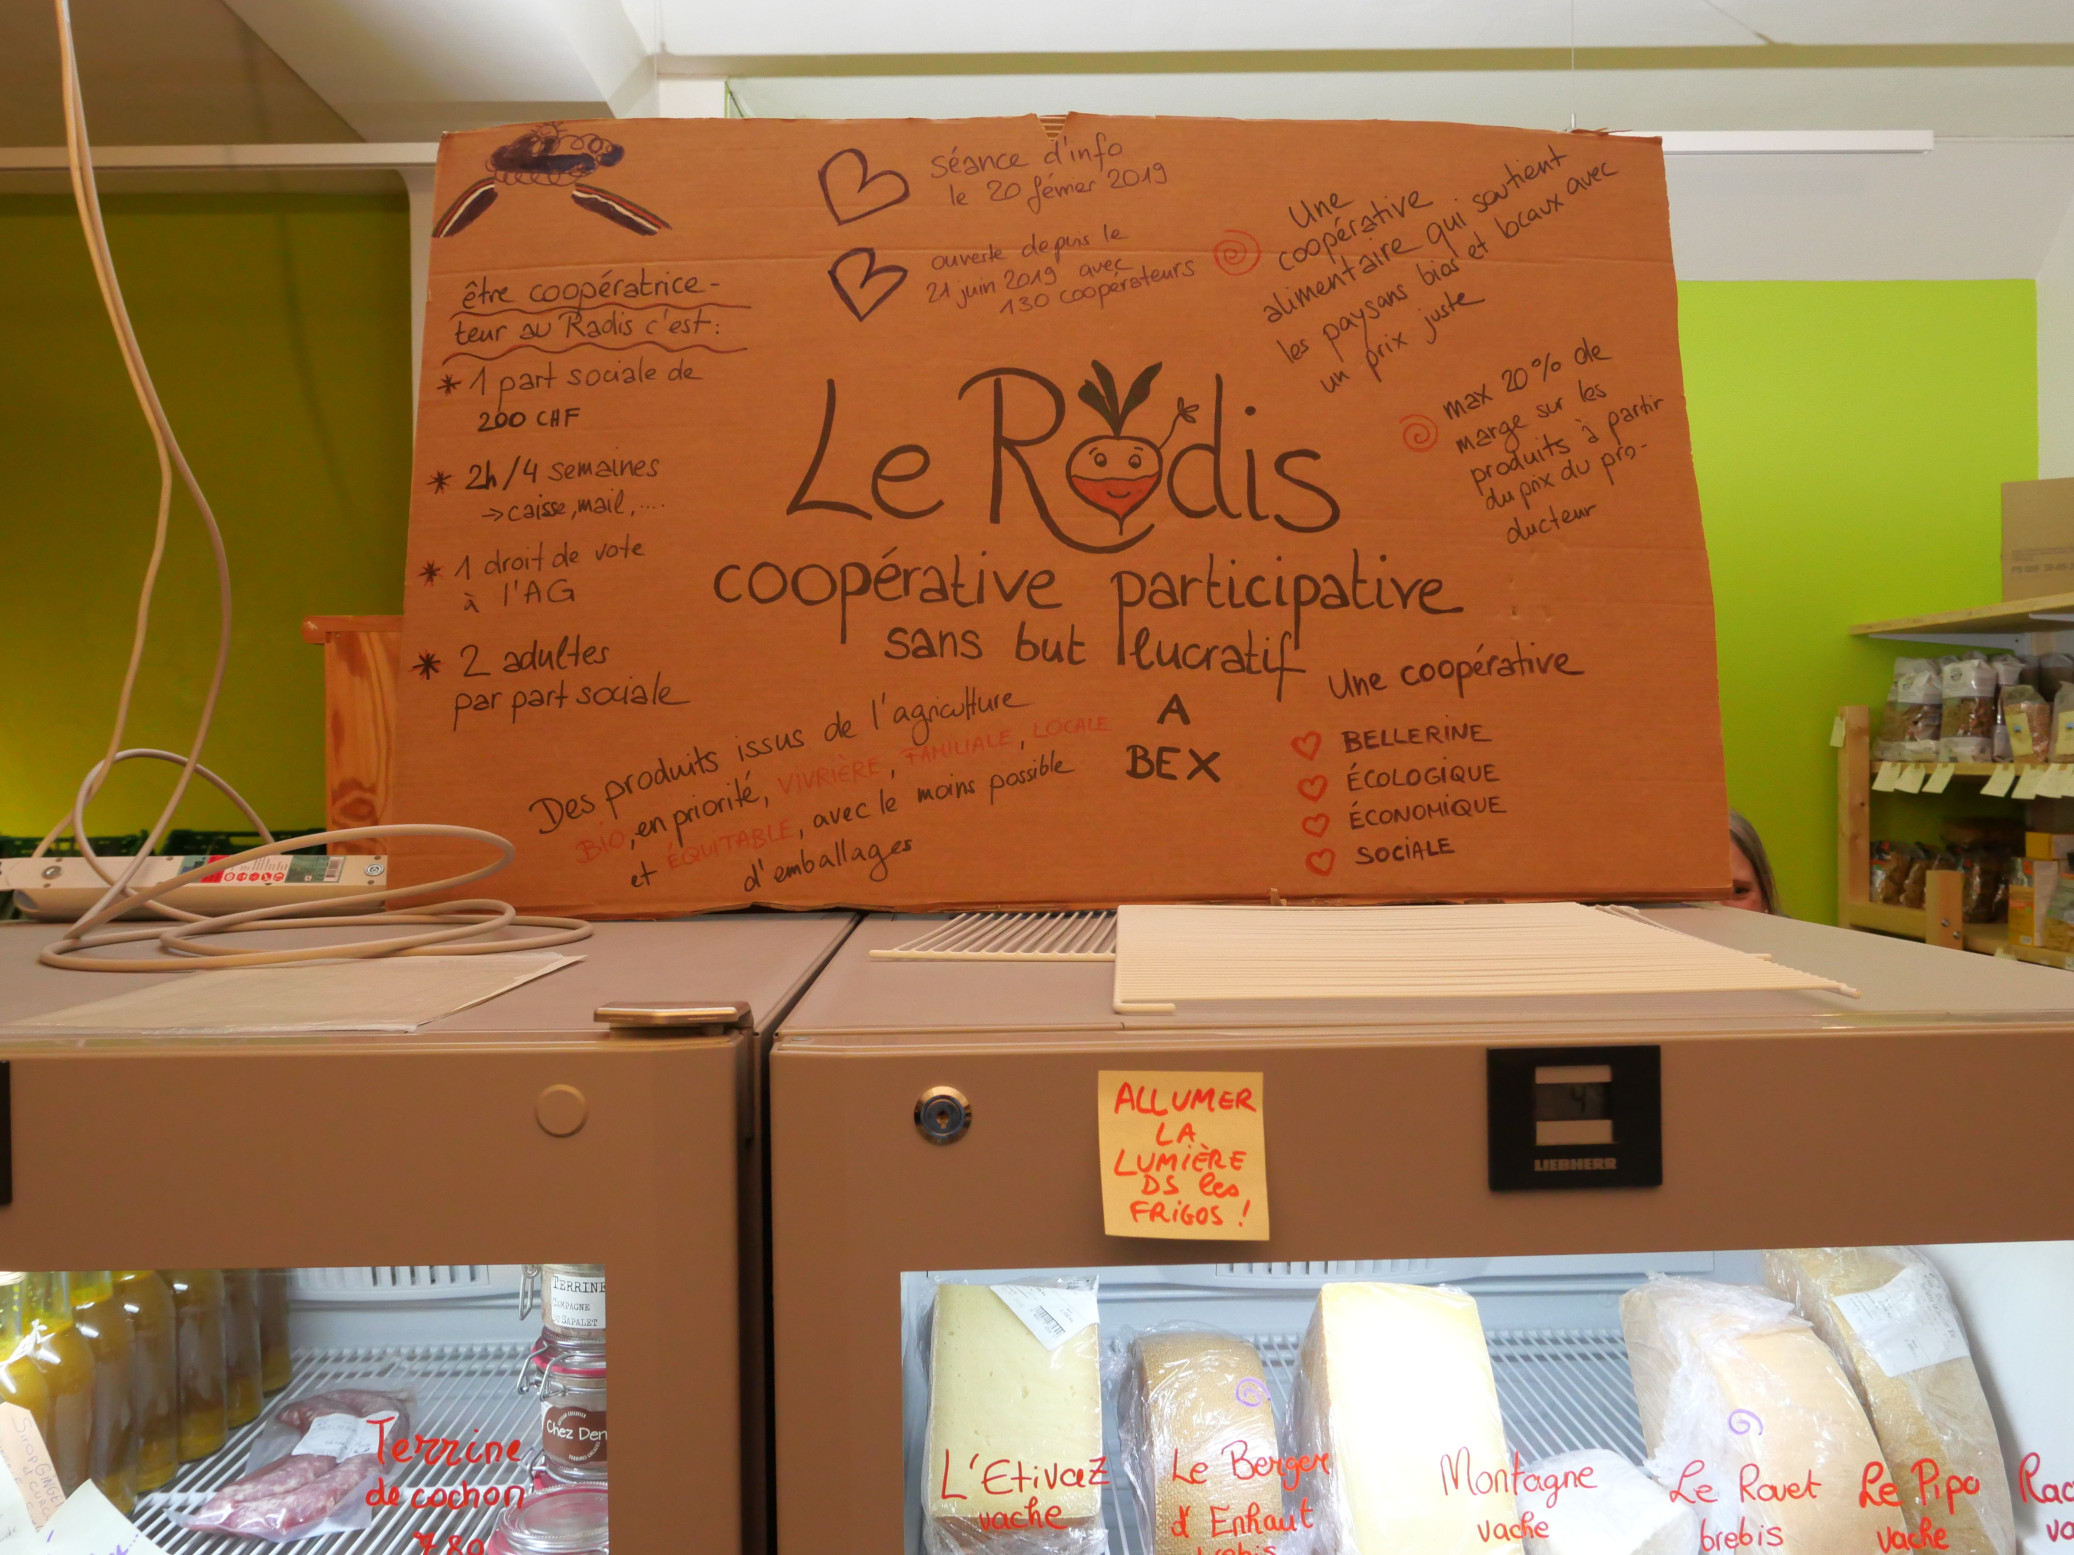 être coopératrice-
teur au Radis c'est:
* 1 part sociale de
200 CHF
* 2h/4 semaines
→ caisse, mail, ....
* 1 droit de vote
à l'AG
* 2 adultes
par part sociale
Séance d'info
le 20 février 2019
ouverte depuis le
21 juin 2019 avec
130 coopérateurs
Une
coopérative
alimentaire qui soutient
les paysans bios et locaux avec
un prix juste
max 20% de
marge sur les
produits à partir
du prix du pro-
ducteur
Le Radis
coopérative participative
sans but lucratif
A
BEX
Des produits issus de l'agriculture
BIO, en priorité, VIVRIÈRE, FAMILIALE, LOCALE
et ÉQUITABLE, avec le moins possible
d'emballages
Une coopérative
BELLERINE
ÉCOLOGIQUE
ÉCONOMIQUE
SOCIALE
ALLUMER
LA
LUMIÈRE
DS les
FRIGOS!
4
LIEBHERR
TERRINE
CAMPAGNE
SAPALET
Chez Den
Terrine
de cochon
7.80
L'Etivaz
vache
Le Berger
d'Enhaut
brebis
Montagne
vache
Le Rouet
brebis
Le Pipo
vache
Rac
va